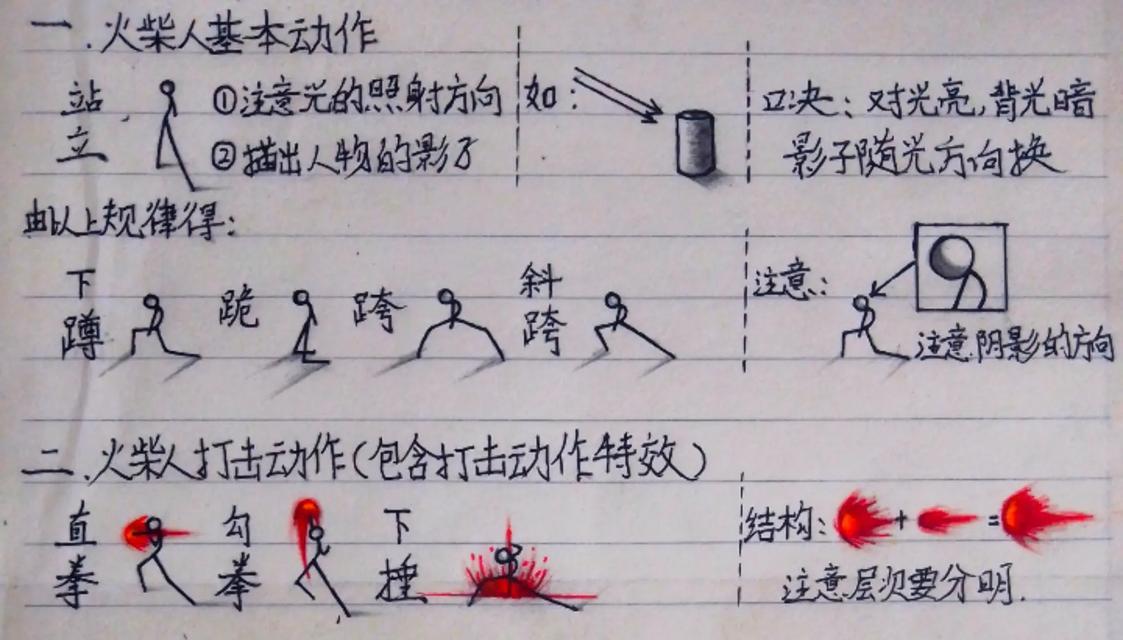 一.火柴人基本动作
站立
①注意光的照射方向
②描出人物的影子
如:
口决:对光亮,背光暗
影子随光方向换
由以上规律得:
下蹲
跪
跨
斜跨
注意:
注意阴影的方向
二.火柴人打击动作(包含打击动作特效)
直拳
勾拳
下捶
结构: + =
注意层次要分明.